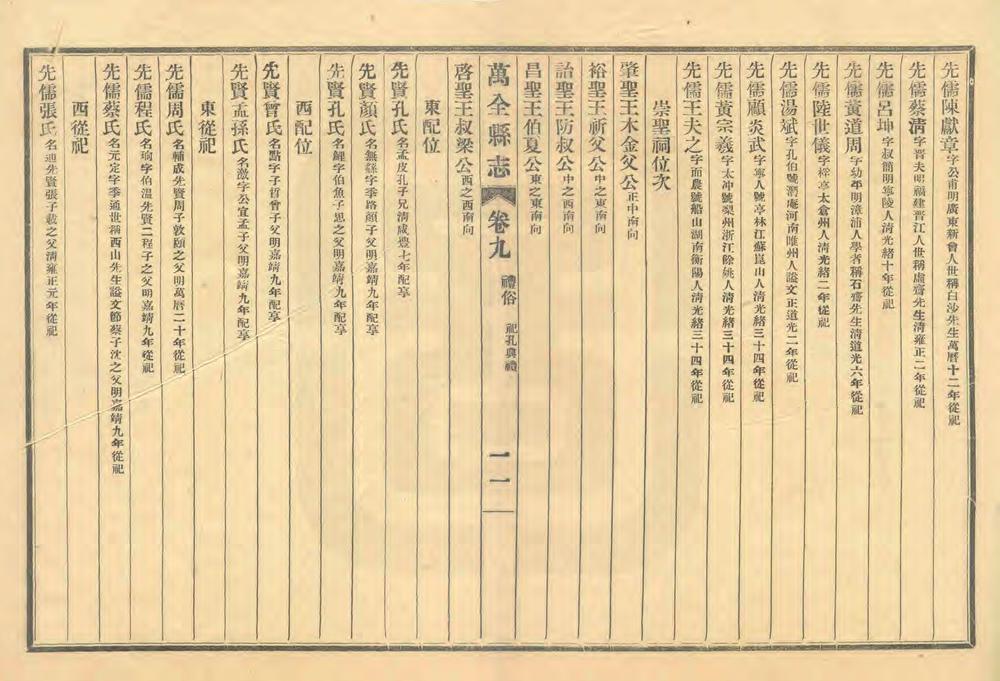 先儒陳獻章字公甫明廣東新會人世稱白沙先生萬曆十二年從祀
先儒蔡清字晉夫明福建晉江人世稱虛齋先生清雍正二年從祀
先儒呂坤字叔簡明寧陵人清光緒十年從祀
先儒黃道周字幼平明漳浦人學者稱石齋先生清道光六年從祀
先儒陸世儀字桴亭太倉州人清光緒二年從祀
先儒湯斌字孔伯號潛庵河南睢州人諡文正道光二年從祀
先儒顧炎武字寧人號亭林江蘇崑山人清光緒三十四年從祀
先儒黃宗羲字太冲號梨州浙江餘姚人清光緒三十四年從祀
先儒王夫之字而農號船山湖南衡陽人清光緒三十四年從祀
崇聖祠位次
肇聖王木金父公正中南向
裕聖王祈父公中之東南向
詒聖王防叔公中之西南向
昌聖王伯夏公東之東南向
萬全縣志 卷九 禮俗 祀孔典禮 一一
啓聖王叔梁公西之西南向
東配位
先賢孔氏名孟皮孔子兄清咸豊七年配享
先賢顏氏名無繇字季路顏子父明嘉靖九年配享
先賢孔氏名鯉字伯魚子思之父明嘉靖九年配享
西配位
先賢曾氏名點字子晳曾子父明嘉靖九年配享
先賢孟孫氏名激字公宜孟子父明嘉靖九年配享
東從祀
先儒周氏名輔成先賢周子敦頤之父明萬曆二十年從祀
先儒程氏名珦字伯溫先賢二程子之父明嘉靖九年從祀
先儒蔡氏名元定字季通世稱西山先生諡文節蔡子沈之父明嘉靖九年從祀
西從祀
先儒張氏名迪先賢張子載之父清雍正元年從祀